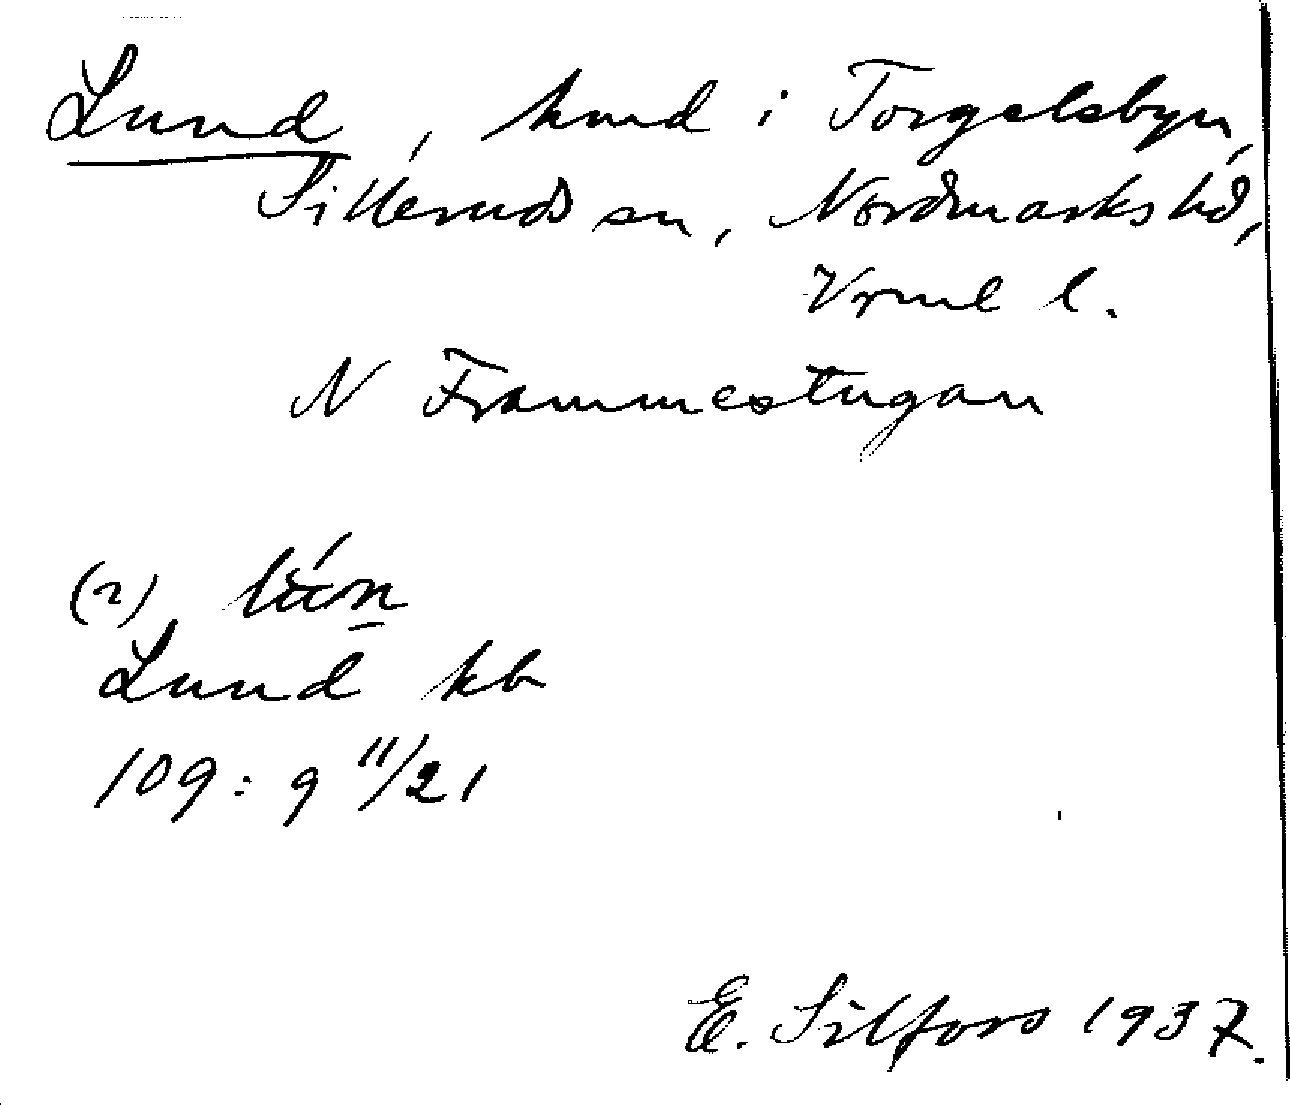 Lund, hmd i Torgelsbyn,
Silleruds sn, Nordmarks hd,
Vrml l.
N Frammestugan
(2)
Lund kb
109: 9 11/21
E. Silfors 1937.